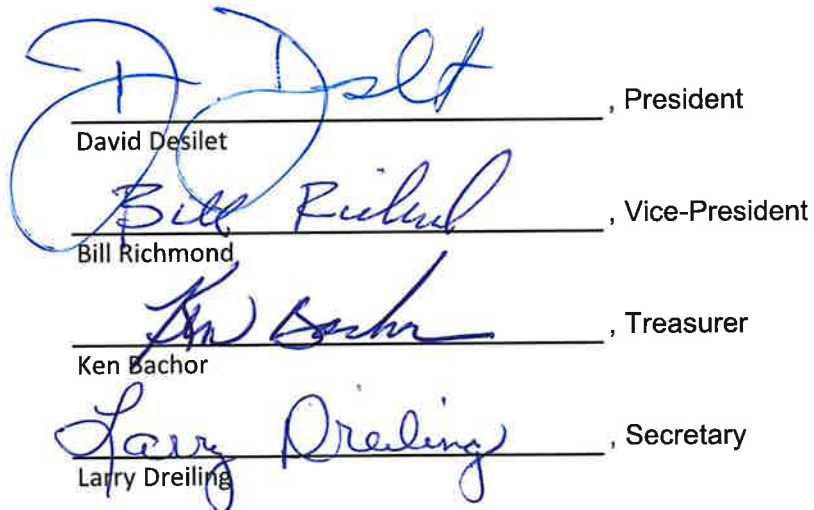 D Deslt , President
David Desilet
Bill Richmond , Vice-President
Bill Richmond
Ken Bachor , Treasurer
Ken Bachor
Larry Dreiling , Secretary
Larry Dreiling